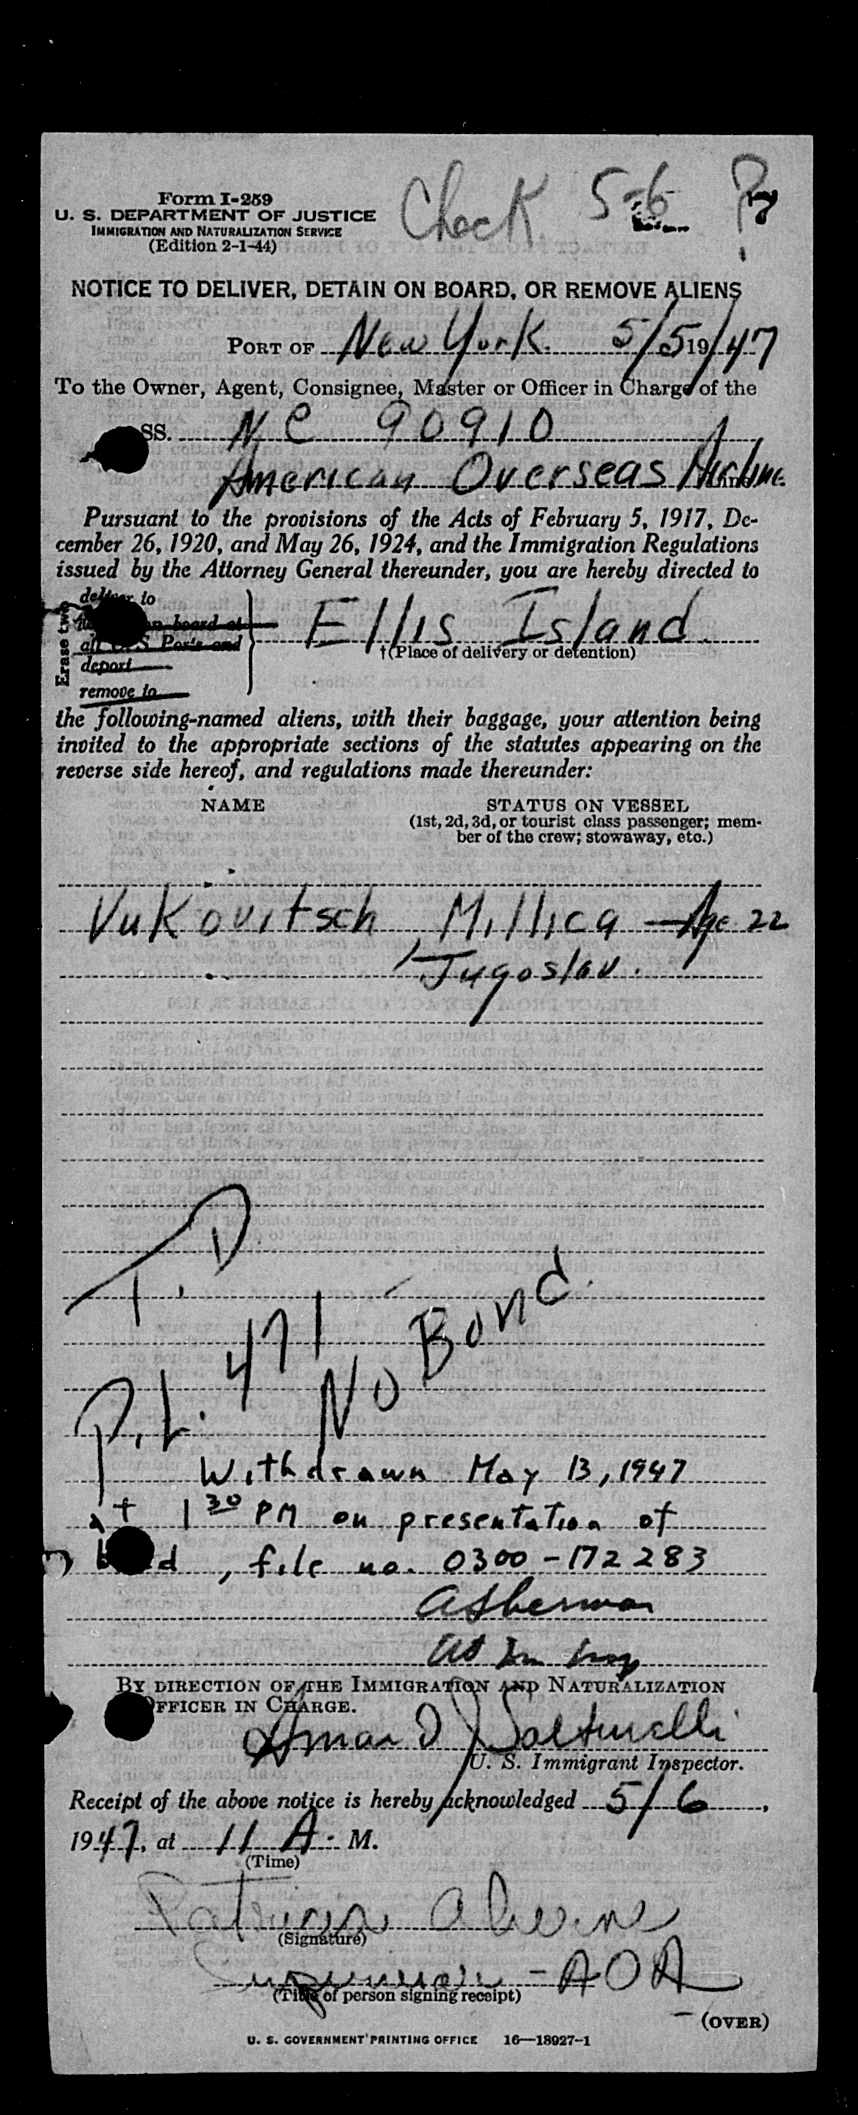 Form I-259
U. S. DEPARTMENT OF JUSTICE
IMMIGRATION AND NATURALIZATION SERVICE
(Edition 2-1-44)
Check 5-6 ?
NOTICE TO DELIVER, DETAIN ON BOARD, OR REMOVE ALIENS
PORT OF New York. 5/5 19/47
To the Owner, Agent, Consignee, Master or Officer in Charge of the
SS. NC 90910
American Overseas Airline
Pursuant to the provisions of the Acts of February 5, 1917, De-
cember 26, 1920, and May 26, 1924, and the Immigration Regulations
issued by the Attorney General thereunder, you are hereby directed to
Erase two
deliver to
on board at
all U S Ports and
deport
remove to
Ellis Island.
†(Place of delivery or detention)
the following-named aliens, with their baggage, your attention being
invited to the appropriate sections of the statutes appearing on the
reverse side hereof, and regulations made thereunder:
NAME STATUS ON VESSEL
(1st, 2d, 3d, or tourist class passenger; mem-
ber of the crew; stowaway, etc.)
Vukovitsch, Millica - Age 22
Jugoslav.
T.D
P.L. 471 No Bond.
Withdrawn May 13, 1947
at 1 30 PM on presentation of
, file no. 0300-172283
BY DIRECTION OF THE IMMIGRATION AND NATURALIZATION
OFFICER IN CHARGE.
U. S. Immigrant Inspector.
Receipt of the above notice is hereby acknowledged 5/6,
1947, at 11 A. M.
(Time)
Patricia
(Signature)
- AOA
(Title of person signing receipt)
(OVER)
U. S. GOVERNMENT PRINTING OFFICE 16—18927-1